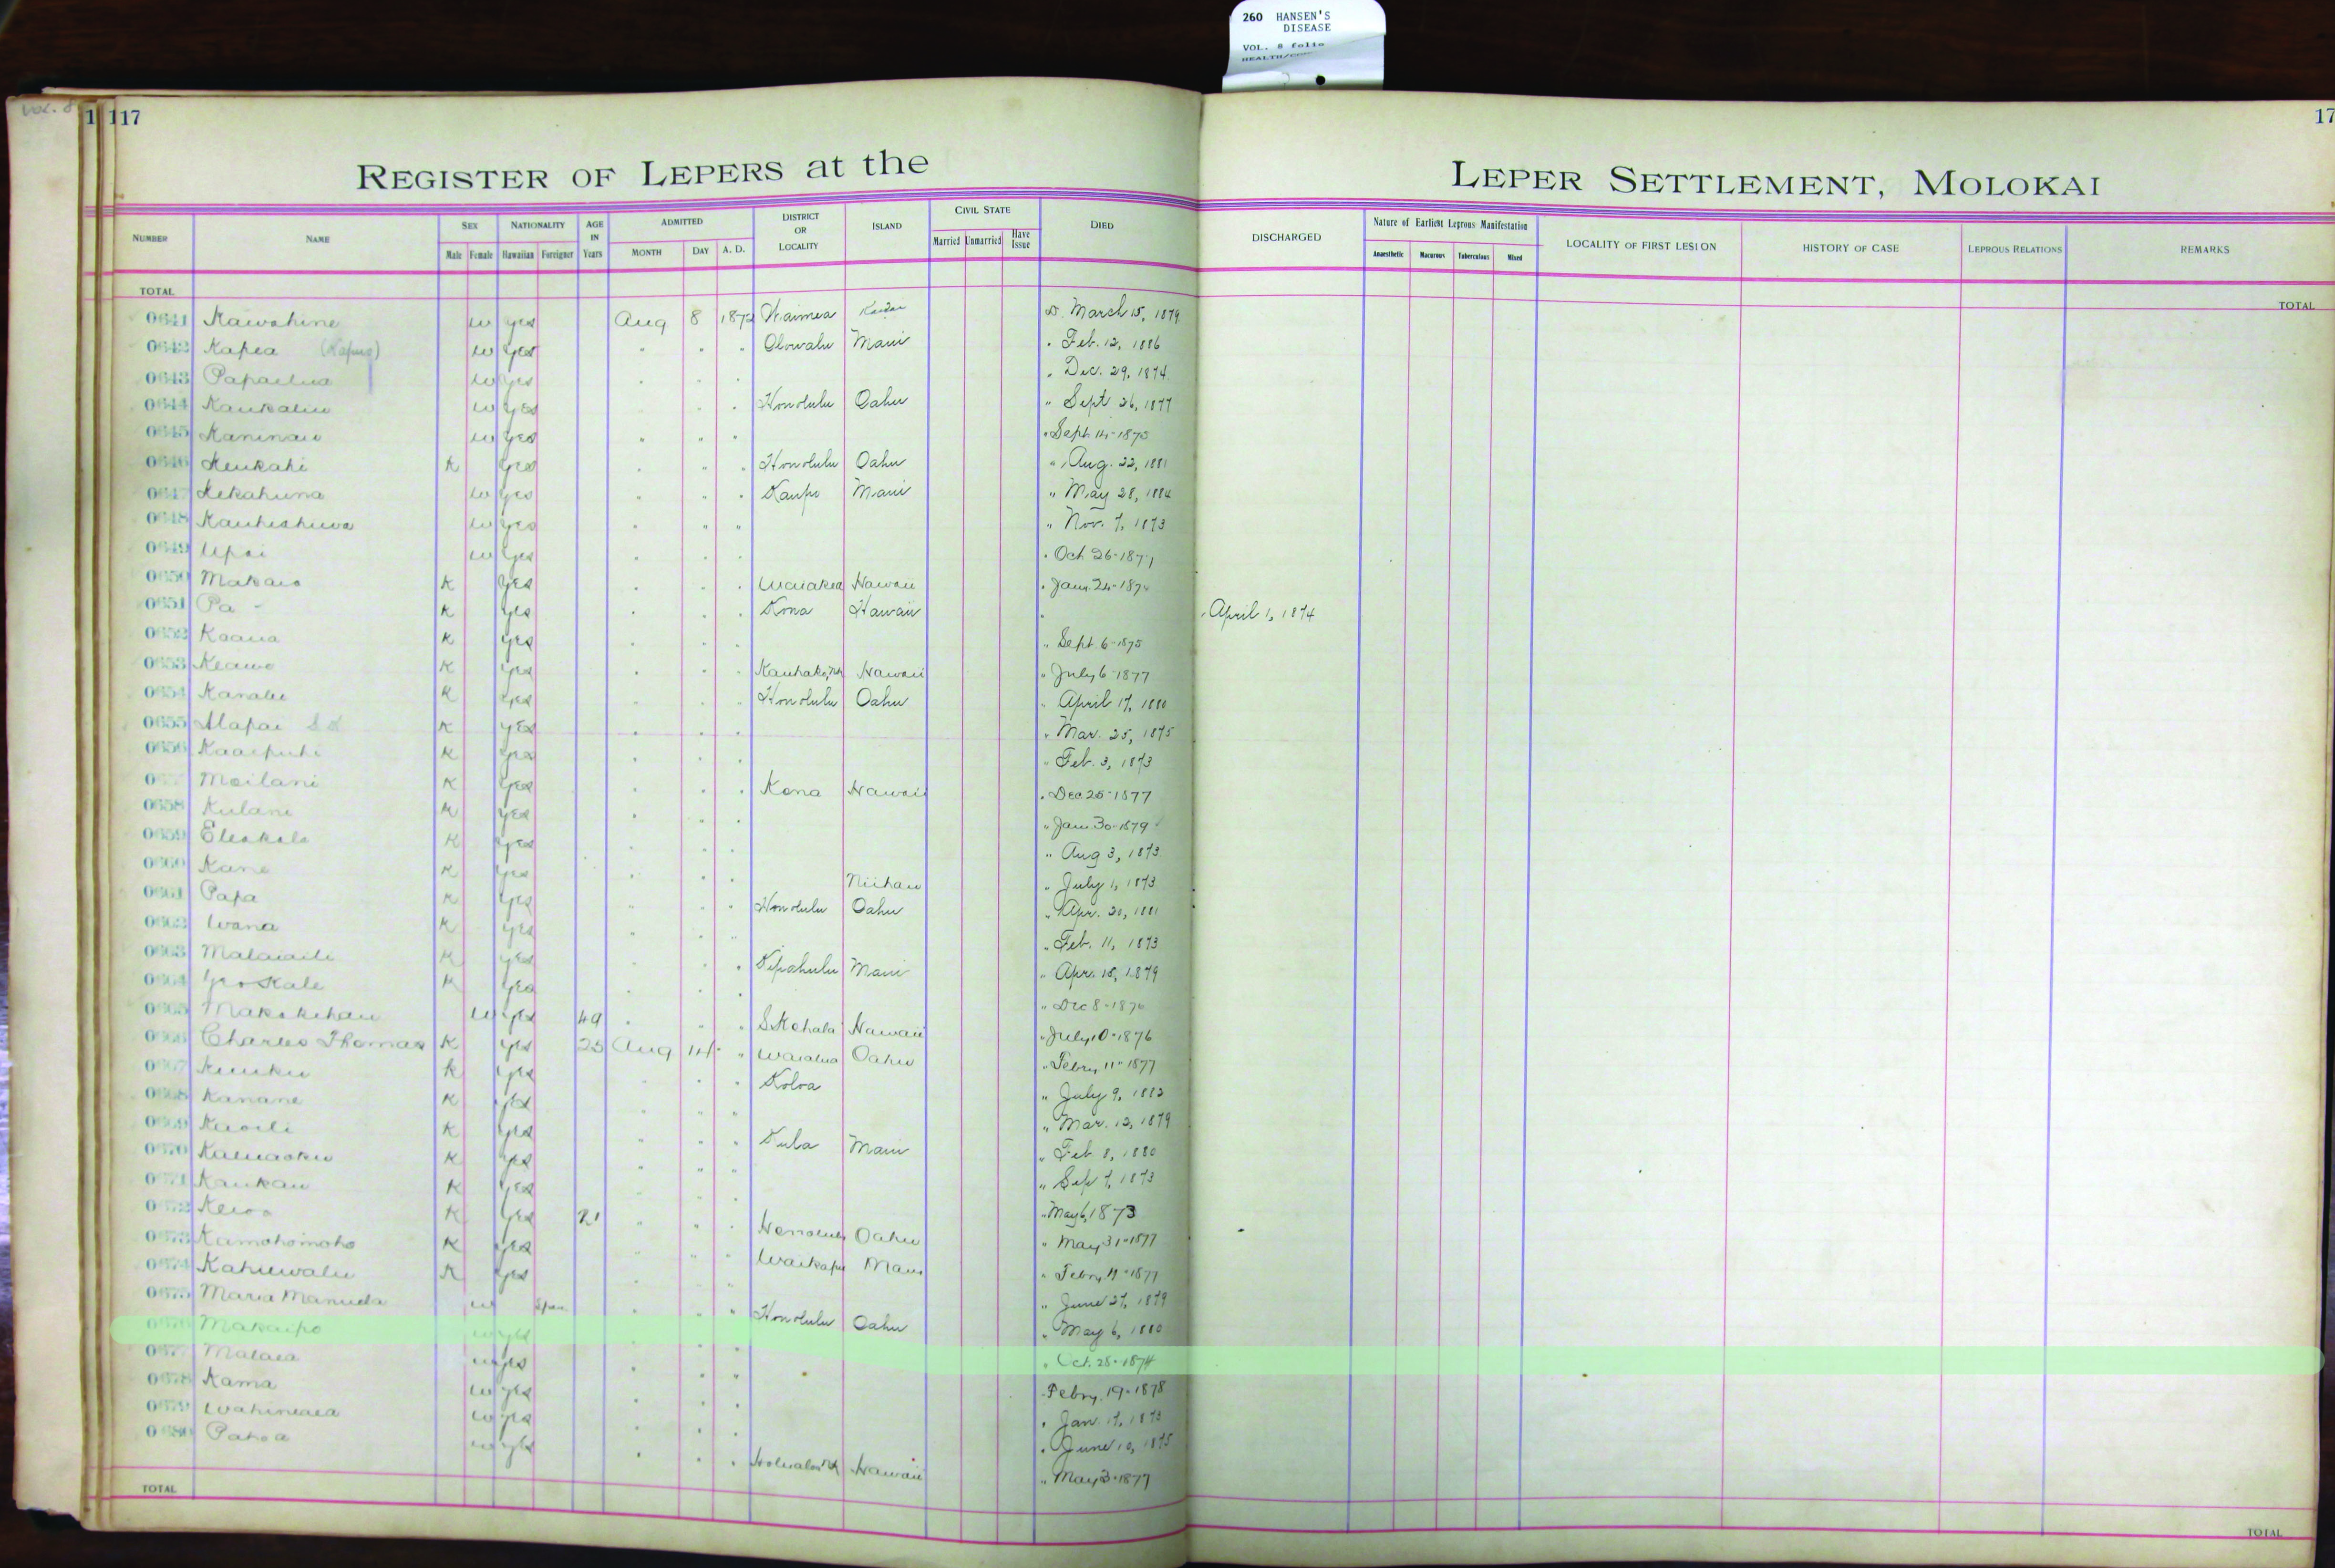 260 HANSEN'S
DISEASE
VOL. 8 folio
Vol. 8
1 117
17
REGISTER OF LEPERS at the
LEPER SETTLEMENT, MOLOKAI
NUMBER NAME SEX Male Female NATIONALITY Hawaiian Foreigner AGE IN Years ADMITTED MONTH DAY A. D. DISTRICT OR LOCALITY ISLAND CIVIL STATE Married Unmarried Have Issue DIED DISCHARGED Nature of Earliest Leprous Manifestation Anaesthetic Macurous Tuberculous Mixed LOCALITY OF FIRST LESION HISTORY OF CASE LEPROUS RELATIONS REMARKS
TOTAL TOTAL
0641 Kawahine w yes Aug 8 1872 Waimea Kauai D. March 15, 1879
0642 Kapea w yes " " " Olowalu Maui " Feb. 12, 1886
0643 w yes " " " " Dec. 29, 1874
0644 w yes " " " Honolulu Oahu " Sept 26, 1877
0645 Kaninau w yes " " " " Sept 14-1875
0646 Keukahi K yes " " " Honolulu Oahu " Aug. 22, 1881
0647 Kekahuna w yes " " " Kaupo Maui " May 28, 1884
0648 w yes " " " " Nov. 7, 1873
0649 Upai w yes " " " " Oct 26-1871
0650 Makaio K yes " " " Waiakea Hawaii " Jany 24-1874
0651 Pa - K yes " " " Kona Hawaii " " April 1, 1874
0652 Koaua K yes " " " " Sept 6-1875
0653 Keawe K yes " " " Hawaii " July 6-1877
0654 Kanalu K yes " " " Honolulu Oahu " April 17, 1880
0655 Alapai K yes " " " " Mar. 25, 1875
0656 Kaaipuhi K yes " " " " Feb. 3, 1873
Moilani K yes " " " Kona Hawaii " Dec 25-1877
0658 Kulani K yes " " " " Jany 30-1879
0659 Eleakala K yes " " " " Aug 3, 1873
0660 Kane K yes " " " Niihau " July 1, 1873
0661 Papa K yes " " " Honolulu Oahu " Apr. 20, 1881
0662 Wana K yes " " " " Feb. 11, 1873
0663 K yes " " " Kipahulu Maui " Apr. 15, 1879
0664 K yes " " " " Dec 8-1876
0665 Makakehau w yes 49 " " " S. Kohala Hawaii " July 10-1876
0666 Charles Thomas K yes 25 Aug 14 " Waialua Oahu " Febry 11-1877
0667 K yes " " " Koloa " July 9, 1883
0668 Kanane K yes " " " " Mar. 12, 1879
0669 Kuoili K yes " " " Kula Maui " Feb 8, 1880
0670 K yes " " " " Sep 7, 1873
0671 Kaukau K yes " " " " May 6, 1873
0672 K yes 21 " " " Honolulu Oahu " May 31-1877
0673 Kamohomoho K yes " " " Waikapu Maui " Febry 11-1877
0674 Kahuwalu K yes " " " " June 27, 1879
0675 Maria Manuela w Span. " " " Honolulu Oahu " May 6, 1880
0676 Makaipo w yes " " " " Oct. 28-1874
0677 Malaea w yes " " " " Febry. 19-1878
0678 Kama w yes " " " " Jan. 17, 1873
0679 Wahineaea w yes " " " " June 10, 1875
0680 Pahoa w yes " " " Hawaii " May 3-1877
TOTAL TOTAL